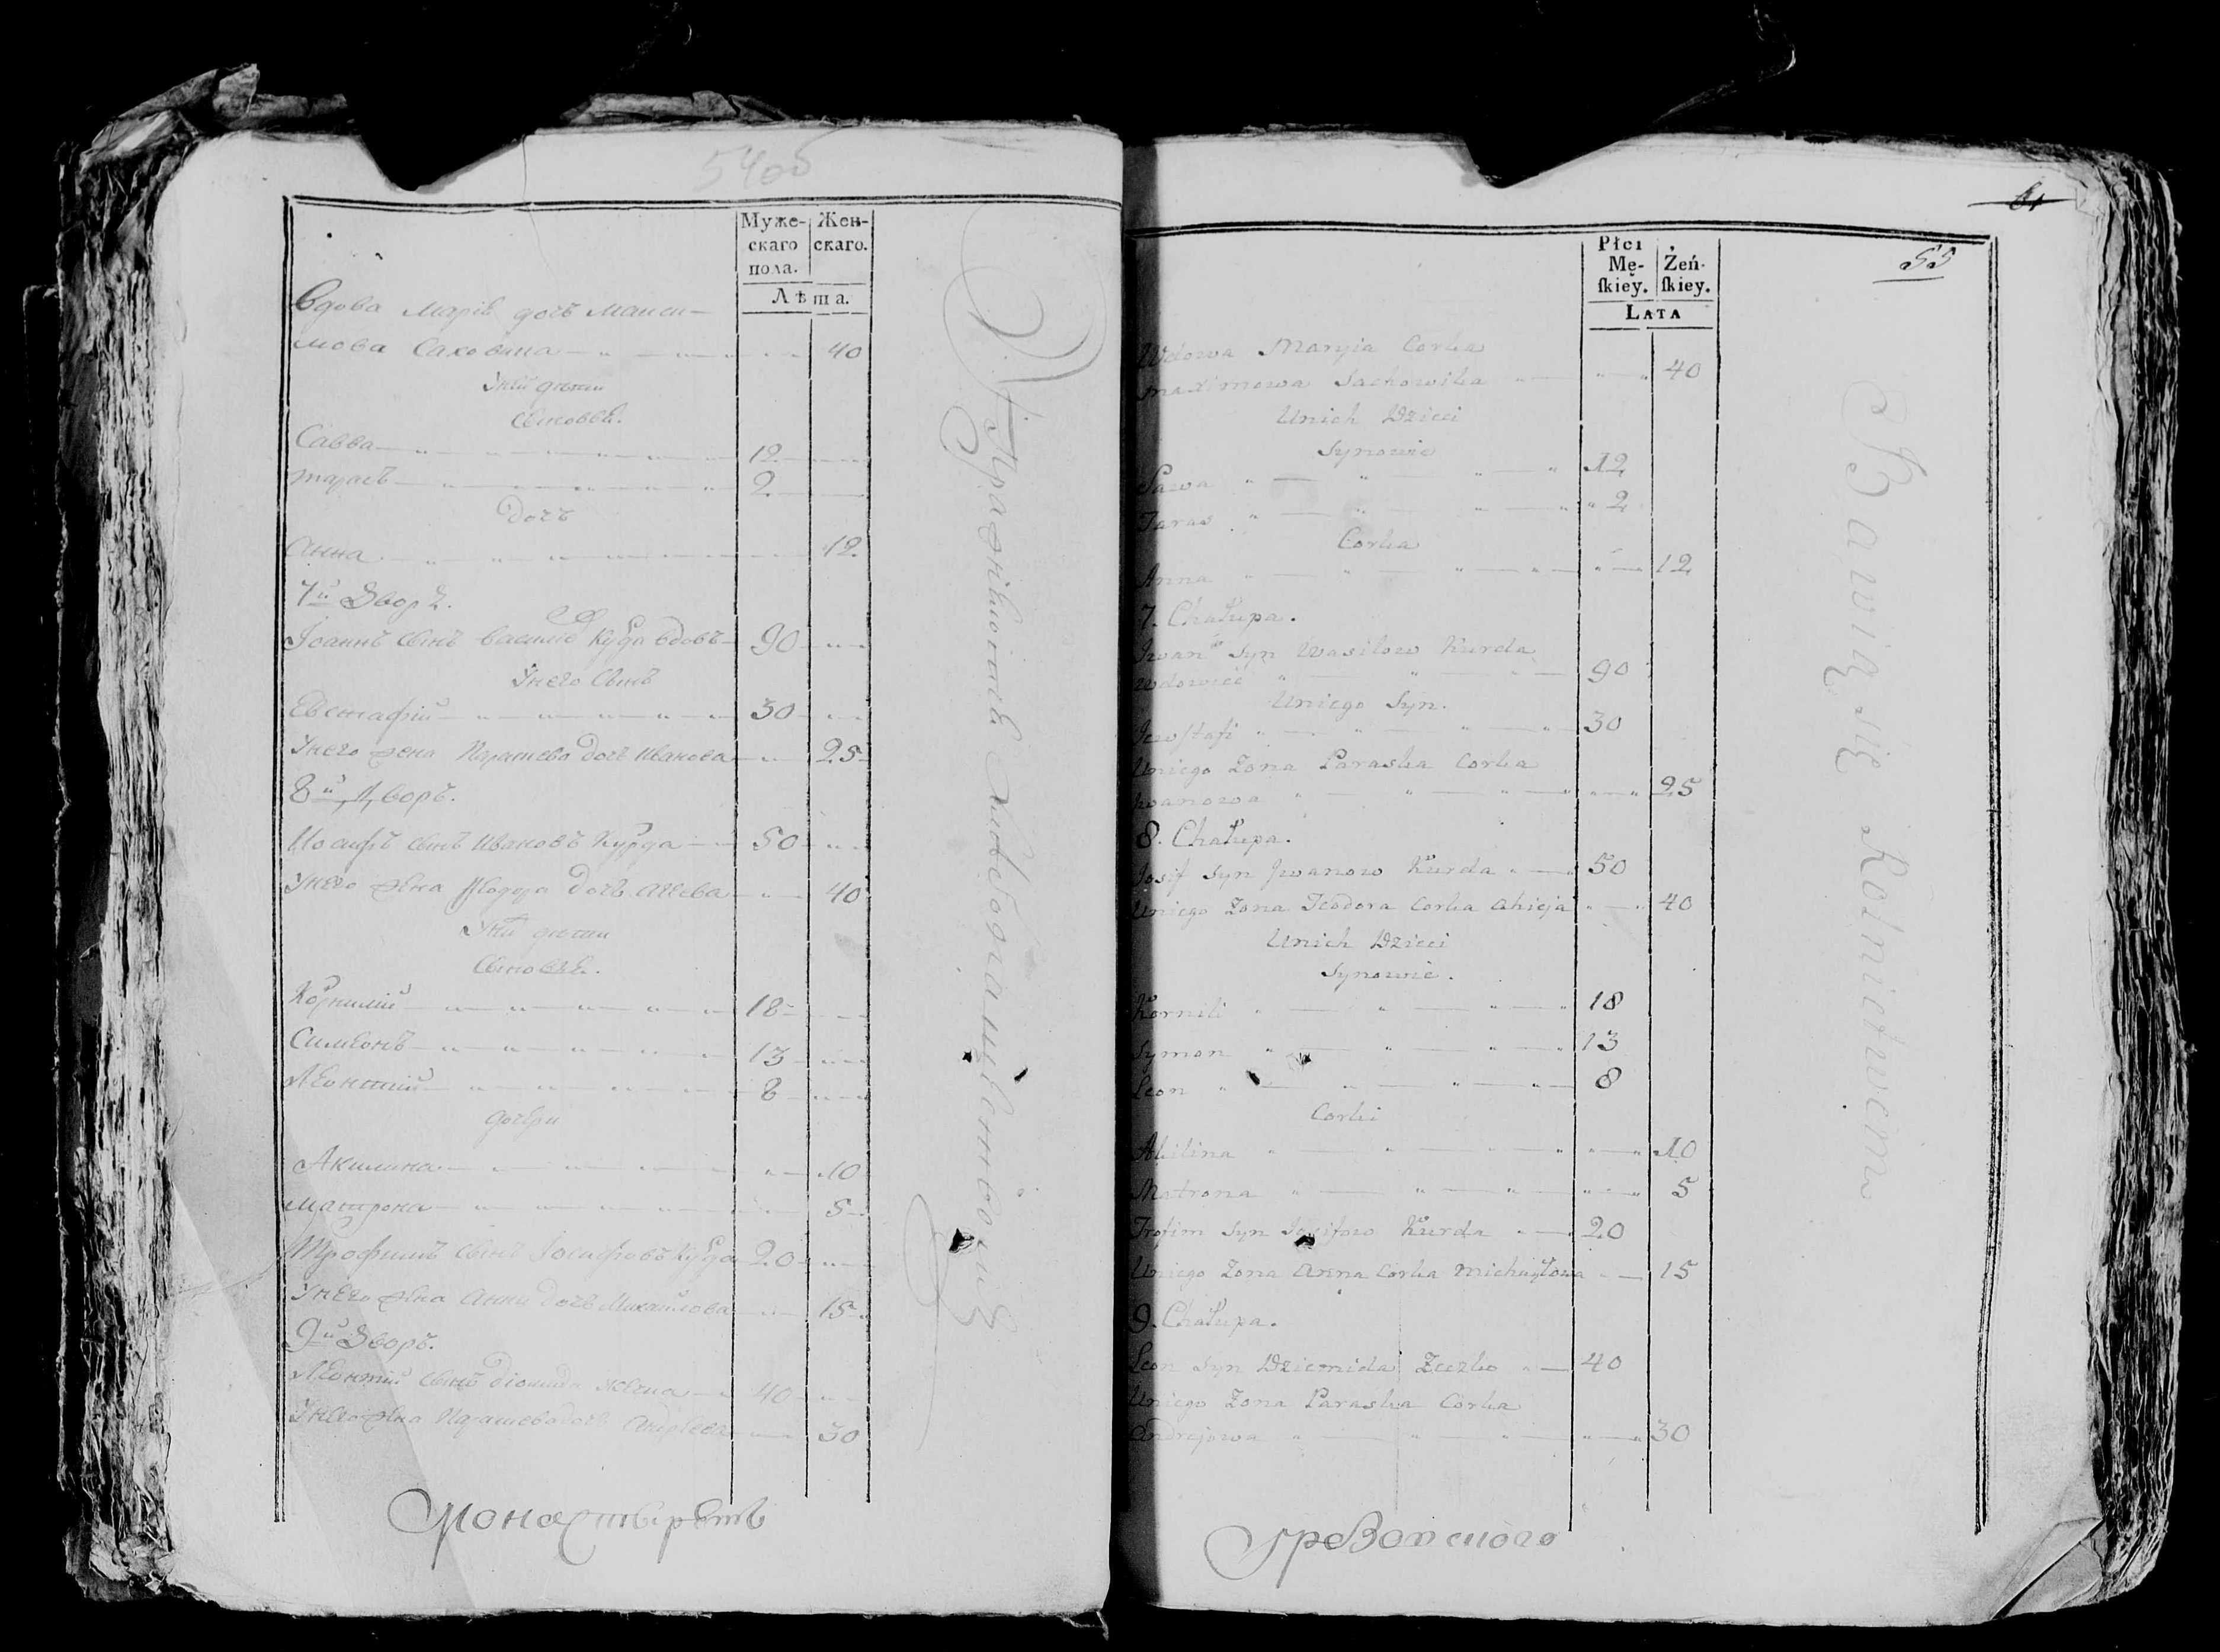 54об
Муже-
скаго
пола.
Жен-
скаго.
Лѣта.
Вдова Марія дочь Макси-
мова Саховика 40
У ней дѣти
Сыновьѣ.
Савва 12
Тарасъ 2
Дочь
Анна 12
7й Дворъ.
Іоаннъ сынъ Василіѧ Курда вдовъ 90
У него Сынъ
Евстафій 30
У него жена Парасева дочь Иванова 25
8й Дворъ.
Иосифъ сынъ Ивановъ Курда 50
У него жена Ѳеодора дочь 40
дѣти
Сыновьѣ.
Корнилій 18
Симеонъ 13
Леонтій 8
дочери
Акилина 10
Матрона 5
Трофимъ сынъ Іосифовъ Курда 20
У него жена Анна дочь Михайлова 15
9й Дворъ.
Леонтій сынъ Діомида 40
У него жена Парасева дочь Андреева 30
Монастырѧ
55
Płci
Mę-
ſkiey.
Żeń-
ſkiey.
LATA
Wdowa Maryia Corka
Maximowa Sachowika 40
Unich Dzieci
Synowie
Sawa 12
Taras 2
Corka
Anna 12
7. Chałupa.
Iwan Syn Wasilow Kurda
wdowiec 90
Uniego Syn.
Iewstafi 30
Uniego Zona Paraska Corka
Iwanowa 25
8. Chałupa.
Iosif Syn Iwanow Kurda 50
Uniego Zona Teodora Corka Ahieja 40
Unich Dzieci
Synowie.
Kornili 18
Symon 13
Leon 8
Corki
Akilina 10
Matrona 5
Trofim Syn Iosifow Kurda 20
Uniego Zona Anna Corka Michayłowa 15
9. Chałupa.
Leon Syn Dziemida 40
Uniego Zona Paraska Corka
Andrejowa 30
Bawią się Rolnictwem